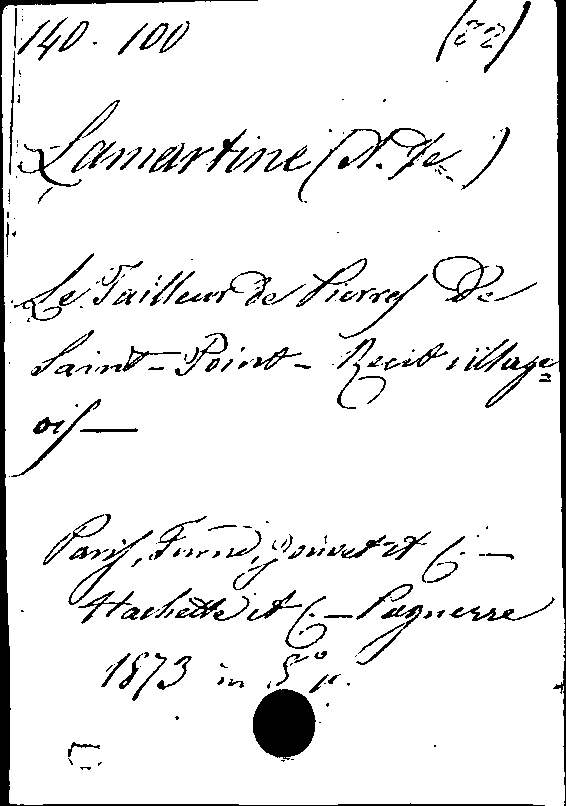 140. 100 (22)
Lamartine (A. de)
Le Tailleur de Pierres De
Saint-Point - Recit village=
ois —
Paris, Furne, Jouvet et C. —
Hachette et C. — Pagnerre
1873 in 8°